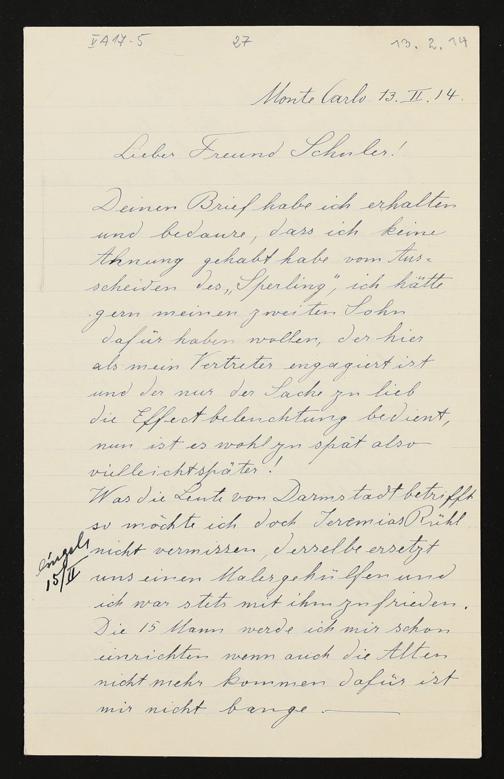 V A 17-5 27 13. 2. 14
Monte Carlo 13. II. 14.
Lieber Freund Schuler!
Deinen Brief habe ich erhalten
und bedaure, dass ich keine
Ahnung gehabt habe vom Aus=
scheiden des „Sperling“, ich hätte
gern meinen zweiten Sohn
dafür haben wollen, der hier
als mein Vertreter engagiert ist
und der nur der Sache zu lieb
die Effectbeleuchtung bedient,
nun ist es wohl zu spät also
vielleicht später!
Was die Leute von Darmstadt betrifft
so möchte ich doch Jeremias Rühl
nicht vermissen, derselbe ersetzt
uns einen Malergehülfen und
ich war stets mit ihm zufrieden.
Die 15 Mann werde ich mir schon
einrichten wenn auch die Alten
nicht mehr kommen dafür ist
mir nicht bange.
15/II